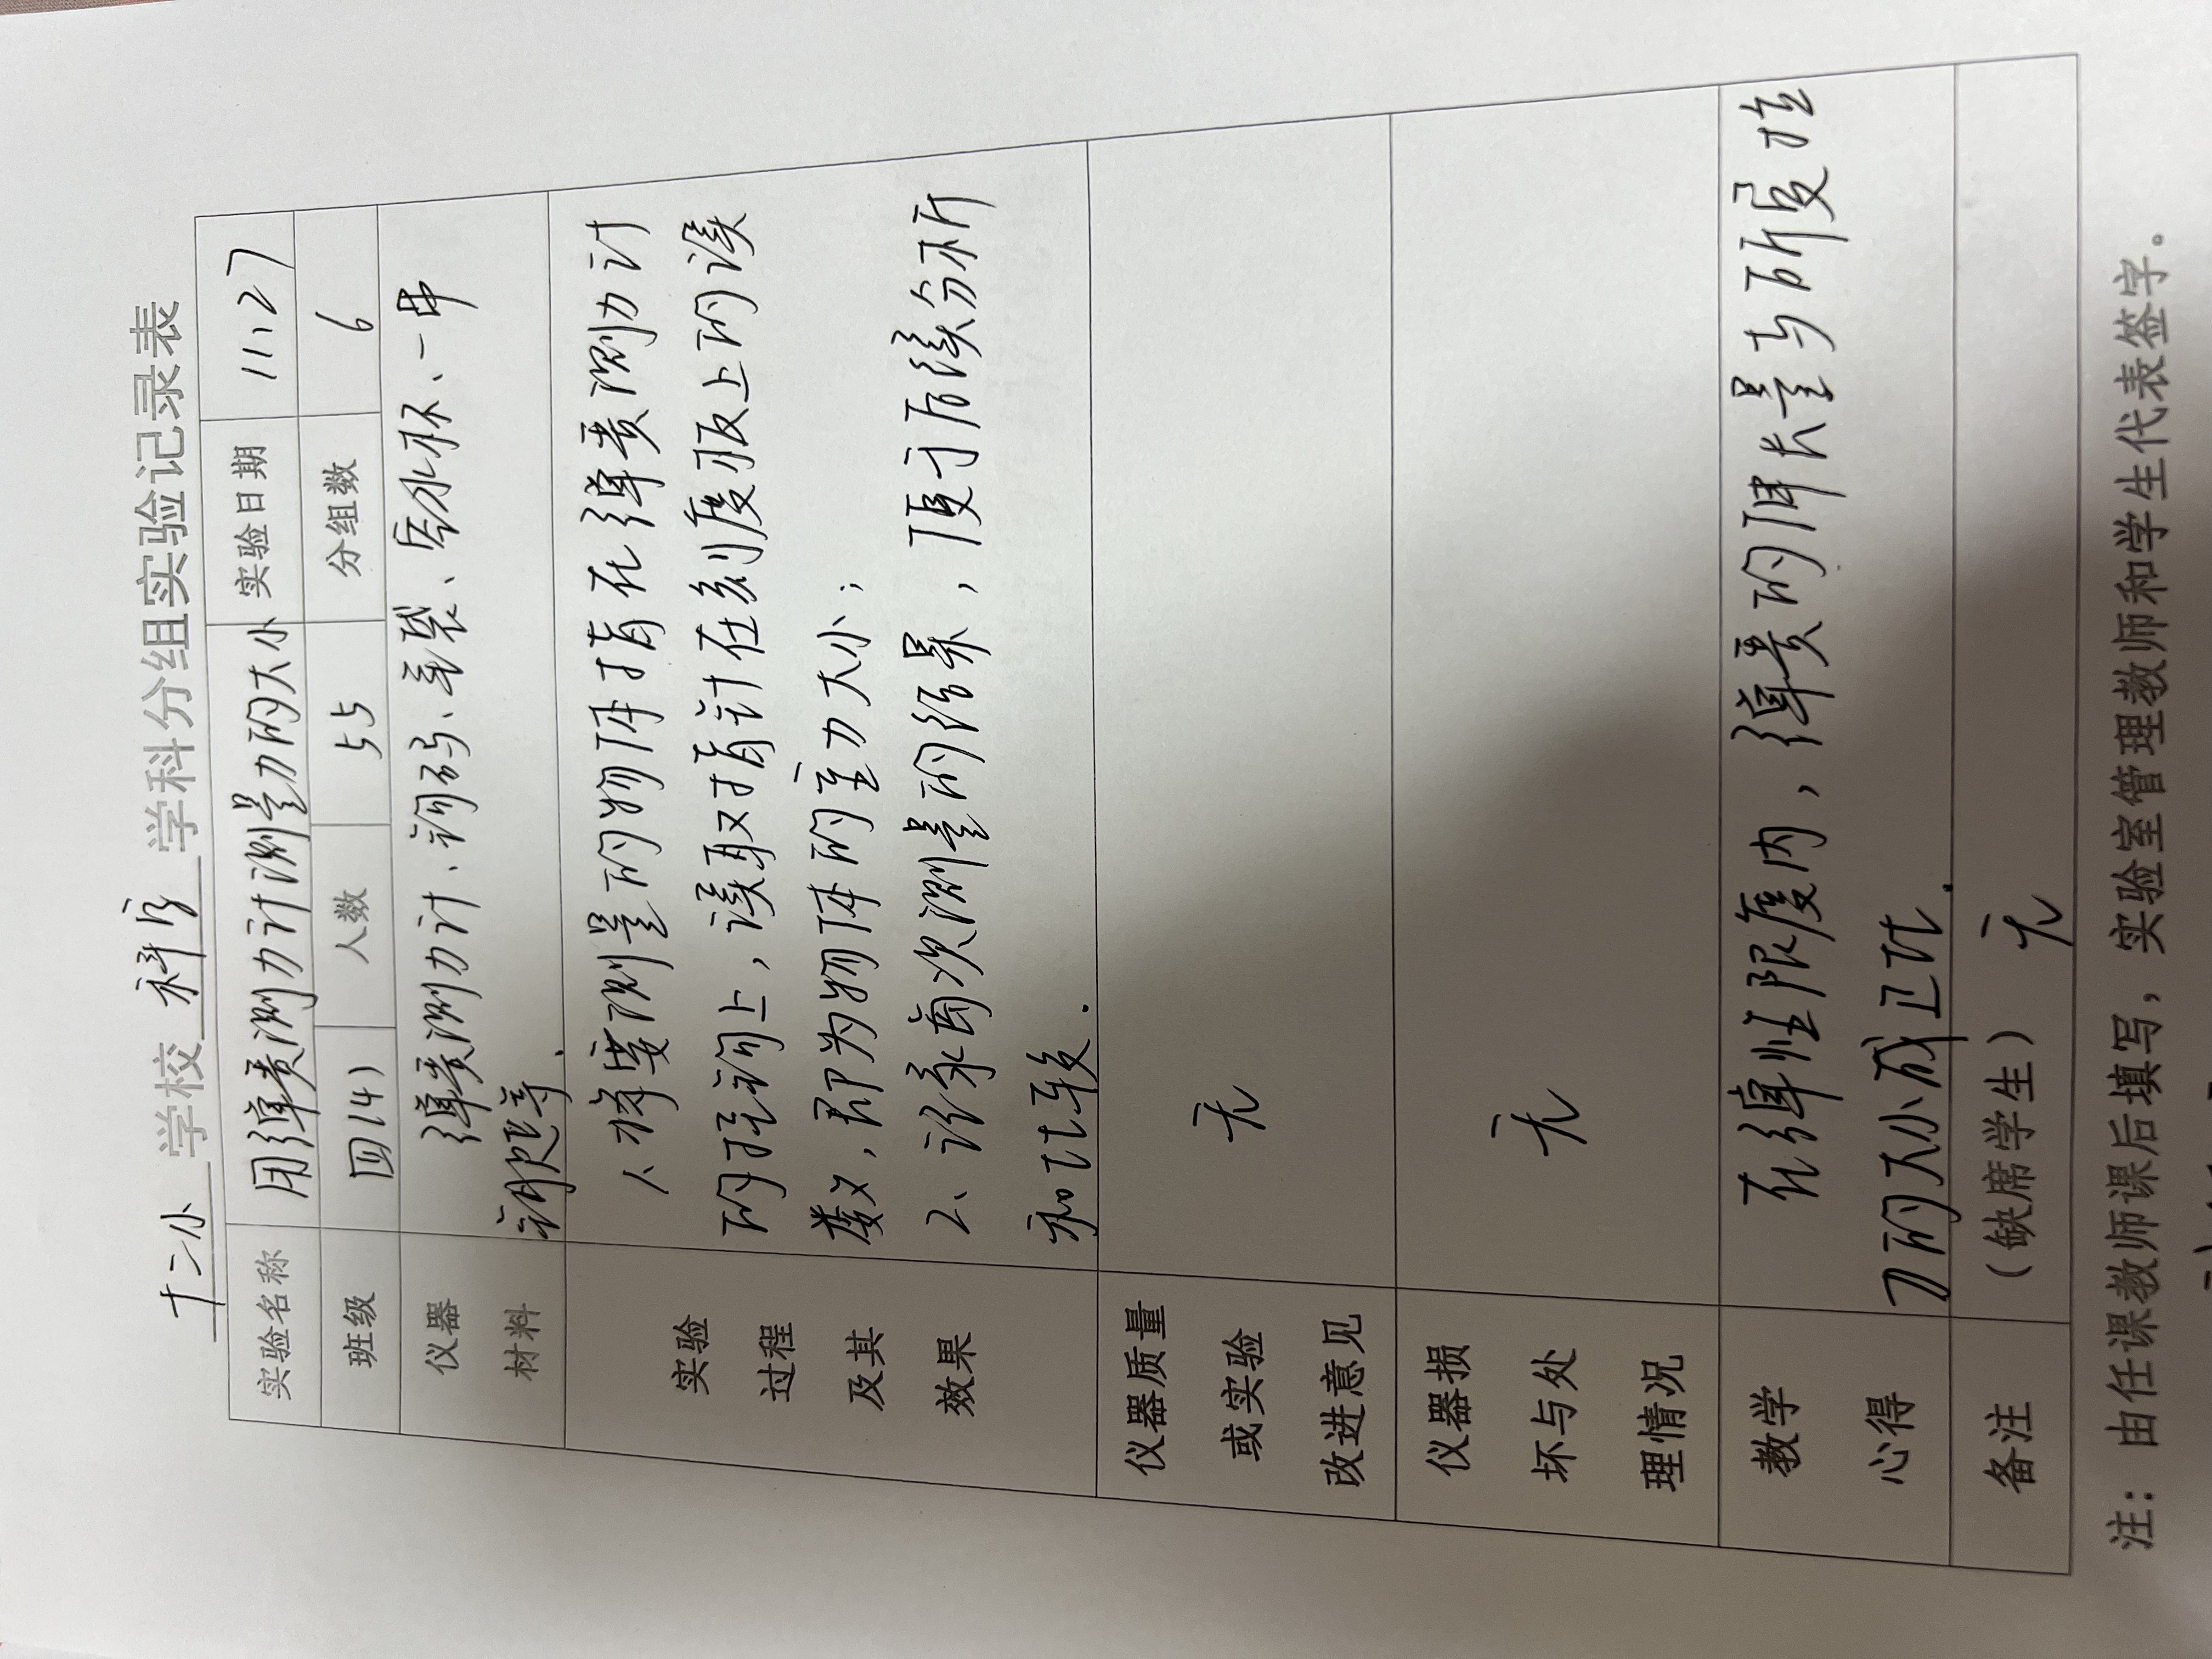 十二小 学校 科学 学科分组实验记录表
实验名称 用弹簧测力计测量力的大小 实验日期 11.27
班级 四(4) 人数 55 分组数 6
仪器材料 弹簧测力计、钩码、毛袋、空水杯、一串
钥匙等.
实验过程及其效果 1、将要测量的物体挂在弹簧测力计
的挂钩上，读取指针在刻度板上的读
数，即为物体的重力大小；
2、记录每次测量的结果，便于后续分析
和比较.
仪器质量或实验改进意见 无
仪器损坏与处理情况 无
教学心得 在弹性限度内，弹簧的伸长量与所受拉
力的大小成正比.
备注 （缺席学生） 无
注：由任课教师课后填写，实验室管理教师和学生代表签字。